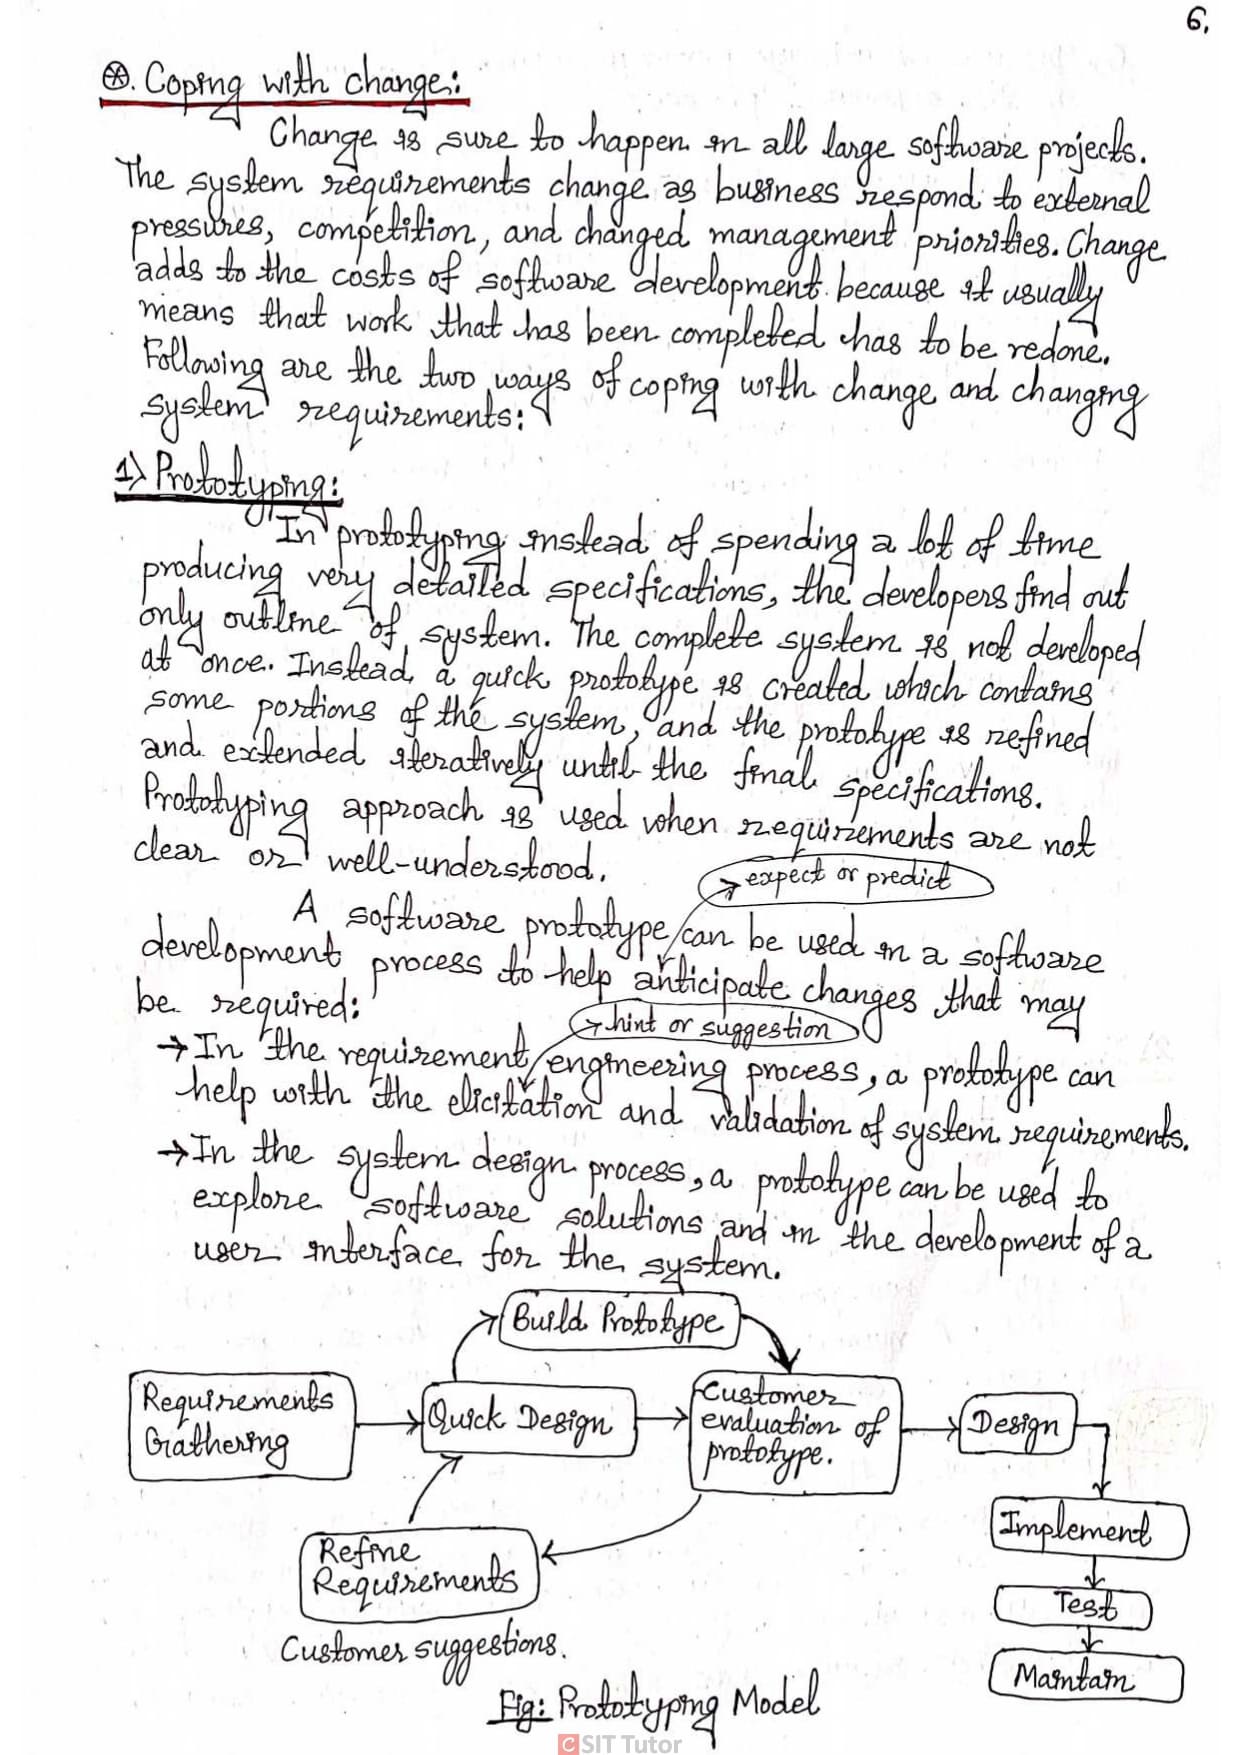 6.
⊛. Coping with change:
Change is sure to happen in all large software projects.
The system requirements change as business respond to external
pressures, competition, and changed management priorities. Change
adds to the costs of software development because it usually
means that work that has been completed has to be redone.
Following are the two ways of coping with change and changing
system requirements:
1) Prototyping:
In prototyping instead of spending a lot of time
producing very detailed specifications, the developers find out
only outline of system. The complete system is not developed
at once. Instead, a quick prototype is created which contains
some portions of the system, and the prototype is refined
and extended iteratively until the final specifications.
Prototyping approach is used when requirements are not
clear or well-understood.
→ expect or predict
A software prototype can be used in a software
development process to help anticipate changes that may
be required:
→ hint or suggestion
→ In the requirement engineering process, a prototype can
help with the elicitation and validation of system requirements.
→ In the system design process, a prototype can be used to
explore software solutions and in the development of a
user interface for the system.
Build Prototype
Requirements
Gathering
Quick Design
Customer
evaluation of
prototype.
Design
Implement
Refine
Requirements
Test
Customer suggestions.
Maintain
Fig: Prototyping Model
CSIT Tutor